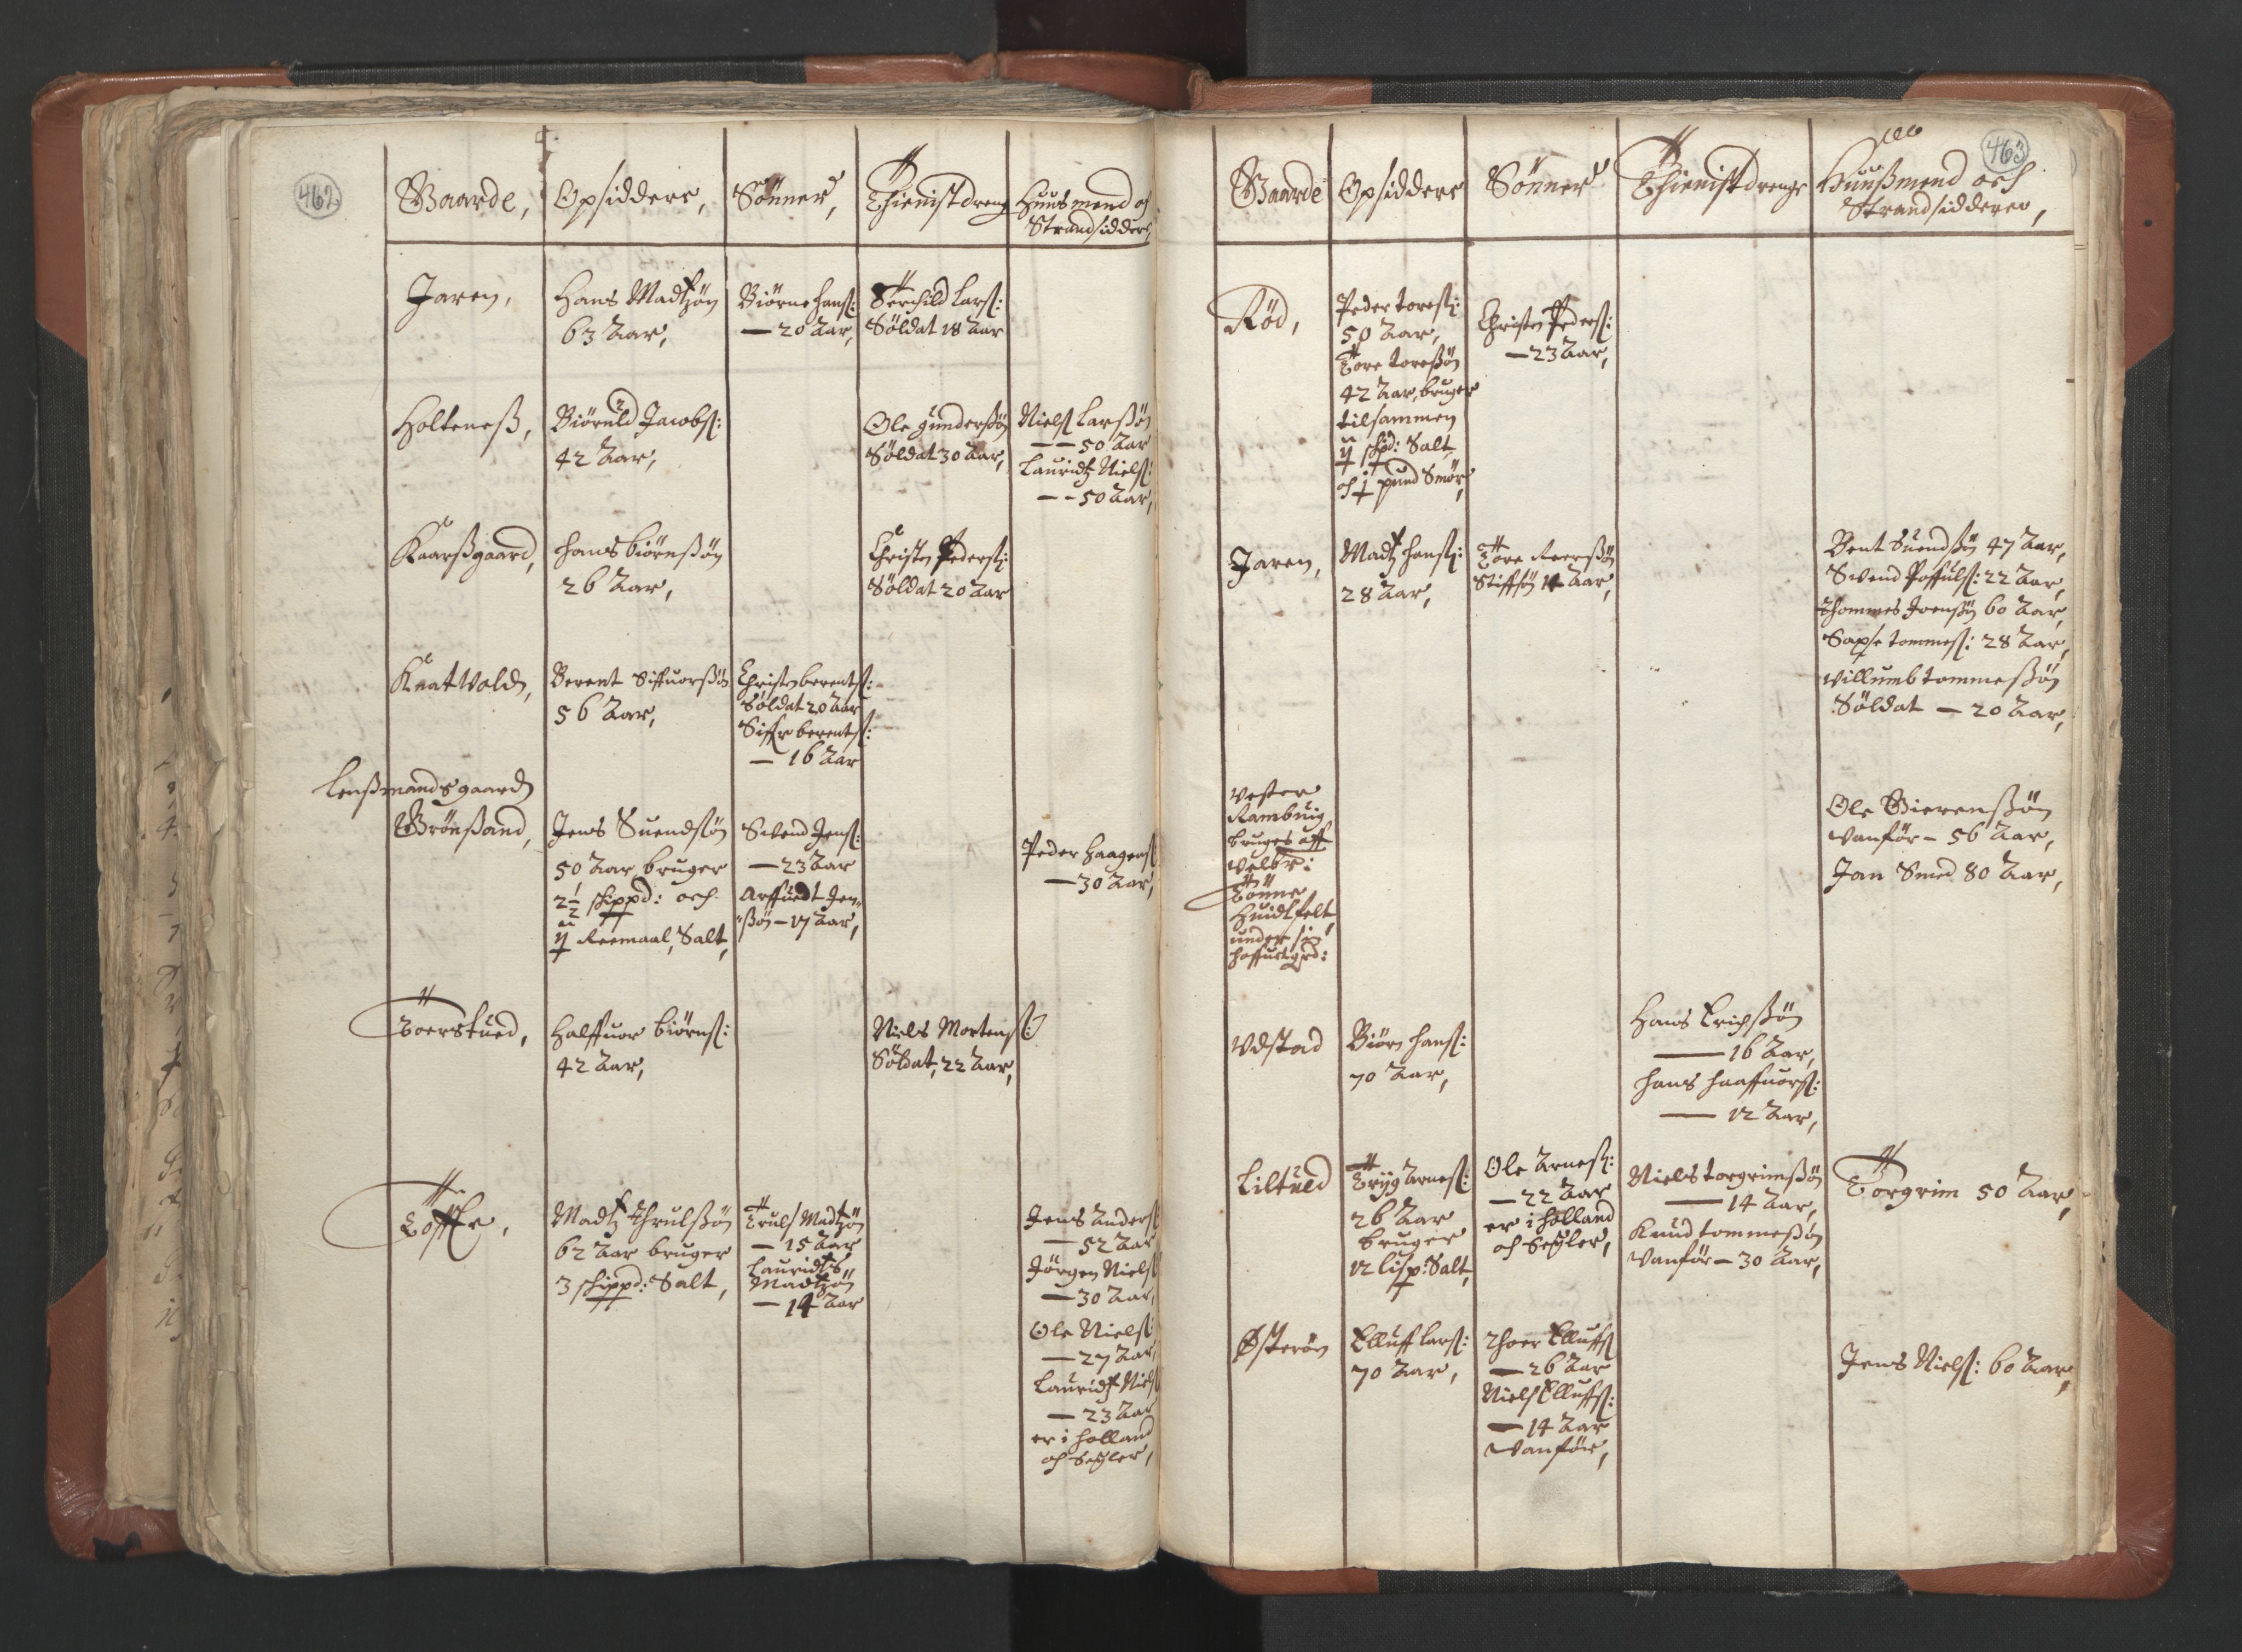 462
Gaarde,
Opsiddere,
Sönner,
Thienistdreng
Huusmend och
Strandsidder,
Jaren,
Hans Madtzön
63 Aar,
Biörne Hans:
— 20 Aar,
Terchild Lars:
Söldat 18 Aar
Holteness,
Biöruld Jacobs:
42 Aar,
Ole Gundersßön
Söldat 30 Aar,
Niels Larsßön
— — 50 Aar
Lauridtz Niels:
— - 50 Aar,
Kaarsßgaard,
Hans Biörnsßön
26 Aar,
Christen Peders:
Söldat 20 Aar
Knatvold,
Berent Siffuorsßön
56 Aar,
Christen berents:
Söldat 20 Aar
Siffr berents:
— 16 Aar
Lensßmandsgaard
Grönsßand,
Jens Suendsön
50 Aar, bruger
2½ skippd: och
ij Reemaal, Salt,
Svend Jens:
— 23 Aar
Arffuedt Jen-
sßön — 17 Aar,
Peder Haagens
— 30 Aar,
Toerstued,
Halffuor Biörns:
42 Aar,
Niels Mortens:
Söldat, 22 Aar,
Töffte,
Madtz Thrulsßön
62 Aar bruger
3 skippd: Salt,
Truls Madtzön
— 15 Aar
Lauridts
Madtzön
— 14 Aar
Jens Anders
— 52 Aar
Jörgen Niels
— 30 Aar,
Ole Niels:
— 27 Aar,
Lauridtz Niels
— 23 Aar
er i Holland
och Segler,
463
Gaarde
Opsiddere
Sönner
Thienistdrenge
Huusßmend och
Strandsiddere,
Röd,
Peder Tores:
50 Aar,
Tore Toresßön
42 Aar, bruger
tilsammen
ij skpd: Salt
och j pund Smör,
Christen Peders:
— 23 Aar,
Jaren,
Madtz Hans:
28 Aar,
Tore Reersßön
Stiffsön 14 Aar,
Bent Suendsßön 47 Aar,
Svend Poffuls: 22 Aar,
Thommes Joensßön 60 Aar,
Sapse tommes: 28 Aar,
Villumb tommesßön
Söldat — 20 Aar,
Vester
Rambuig
bruges aff
Velbr:
Tönne
Huidtfelt
under sin
hoffuetgrd:
Ole Bierensßön
Vanför — 56 Aar,
Jan Smed 80 Aar,
Vdstad
Biörn Hans:
70 Aar,
Hans Erichsßön
— 16 Aar,
Hans Haaffuors:
— 12 Aar,
Liltued
Tryg Arnes:
26 Aar
bruger
12 lisp: Salt,
Ole Arnes:
— 22 Aar
er i Holland
och Segler,
Niels torgrimsßön
— 14 Aar,
Knud tommesßön
Vanför — 30 Aar,
Torgrim 50 Aar,
Østerön
Elluff Lars:
70 Aar,
Thoer Elluffs
— 26 Aar
Niels Elluffs:
— 14 Aar
Vanför,
Jens Niels: 60 Aar,